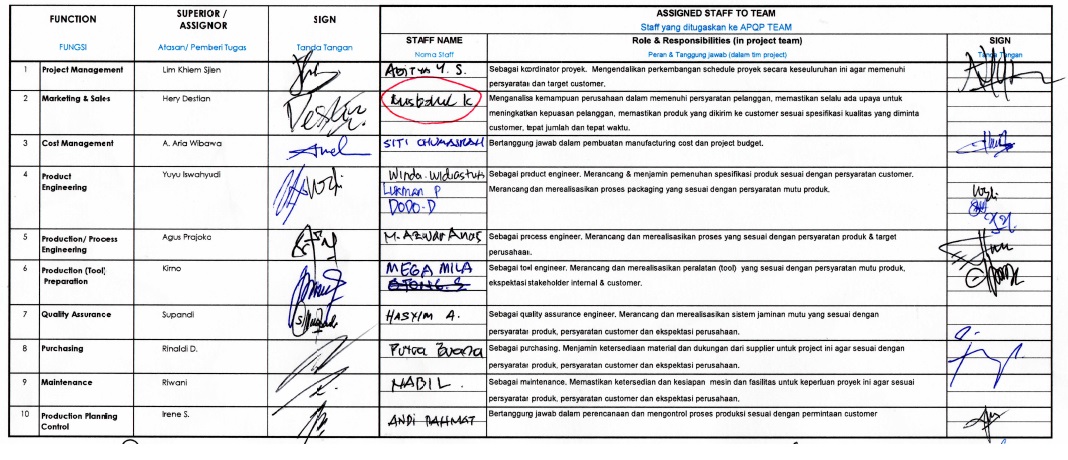 FUNCTION
FUNGSI
SUPERIOR /
ASSIGNOR
Atasan/ Pemberi Tugas
SIGN
Tanda Tangan
ASSIGNED STAFF TO TEAM
Staff yang ditugaskan ke APQP TEAM
STAFF NAME
Nama Staff
Role & Responsibilities (in project team)
Peran & Tanggung jawab (dalam tim project)
SIGN
Tanda Tangan
1 Project Management Lim Khiem Sjien ADITYA Y. S. Sebagai koordinator proyek. Mengendalikan perkembangan schedule proyek secara keseluruhan ini agar memenuhi
persyaratan dan target customer.
2 Marketing & Sales Hery Destian Menganalisa kemampuan perusahaan dalam memenuhi persyaratan pelanggan, memastikan selalu ada upaya untuk
meningkatkan kepuasan pelanggan, memastikan produk yang dikirim ke customer sesuai spesifikasi kualitas yang diminta
customer, tepat jumlah dan tepat waktu.
3 Cost Management A. Aria Wibawa SITI Bertanggung jawab dalam pembuatan manufacturing cost dan project budget.
4 Product
Engineering
Yuyu Iswahyudi
Winda. Widiastuti
LUKMAN P
DODO-D
Sebagai product engineer. Merancang & menjamin pemenuhan spesifikasi produk sesuai dengan persyaratan customer.
Merancang dan merealisasikan proses packaging yang sesuai dengan persyaratan mutu produk.
5 Production/ Process
Engineering
Agus Prajoko
M. AZWAR ANAS
Sebagai process engineer. Merancang dan merealisasikan proses yang sesuai dengan persyaratan produk & target
perusahaan.
6 Production (Tool)
Preparation
Kirno
MEGA MILA
Sebagai tool engineer. Merancang dan merealisasikan peralatan (tool) yang sesuai dengan persyaratan mutu produk,
ekspektasi stakeholder internal & customer.
7 Quality Assurance Supandi HASYIM A. Sebagai quality assurance engineer. Merancang dan merealisasikan sistem jaminan mutu yang sesuai dengan
persyaratan produk, persyaratan customer dan ekspektasi perusahaan.
8 Purchasing Rinaldi D. Putra Buana Sebagai purchasing. Menjamin ketersediaan material dan dukungan dari supplier untuk project ini agar sesuai dengan
persyaratan produk, persyaratan customer dan ekspektasi perusahaan.
9 Maintenance Riwani NABIL. Sebagai maintenance. Memastikan ketersedian dan kesiapan mesin dan fasilitas untuk keperluan proyek ini agar sesuai
persyaratan produk, persyaratan customer dan ekspektasi perusahaan.
10 Production Planning
Control
Irene S.
ANDI RAHMAT
Bertanggung jawab dalam perencanaan dan mengontrol proses produksi sesuai dengan permintaan customer